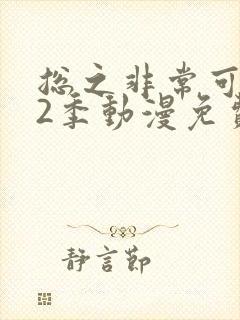 总之非常可
2季動漫免費
静言節